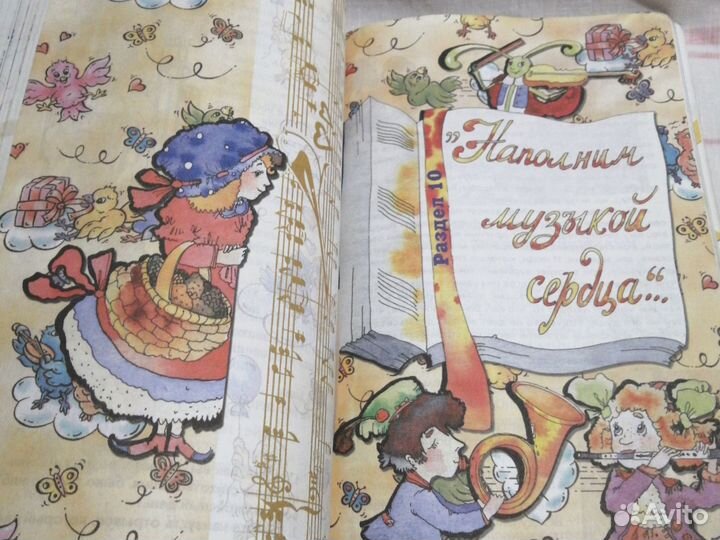 Раздел 10
„Наполним
музыкой
сердца“...
Avito